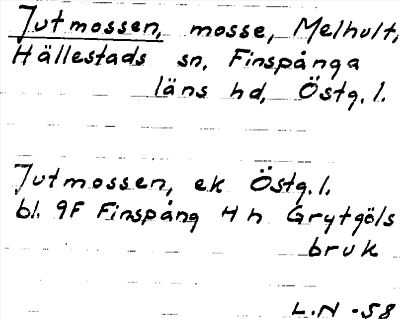 Jutmossen, mosse, Melhult,
Hällestads sn, Finspånga
läns hd, Östg.l.
Jutmossen, ek Östg.l.
bl. 9F Finspång H h Grytgöls
bruk
L.N -58